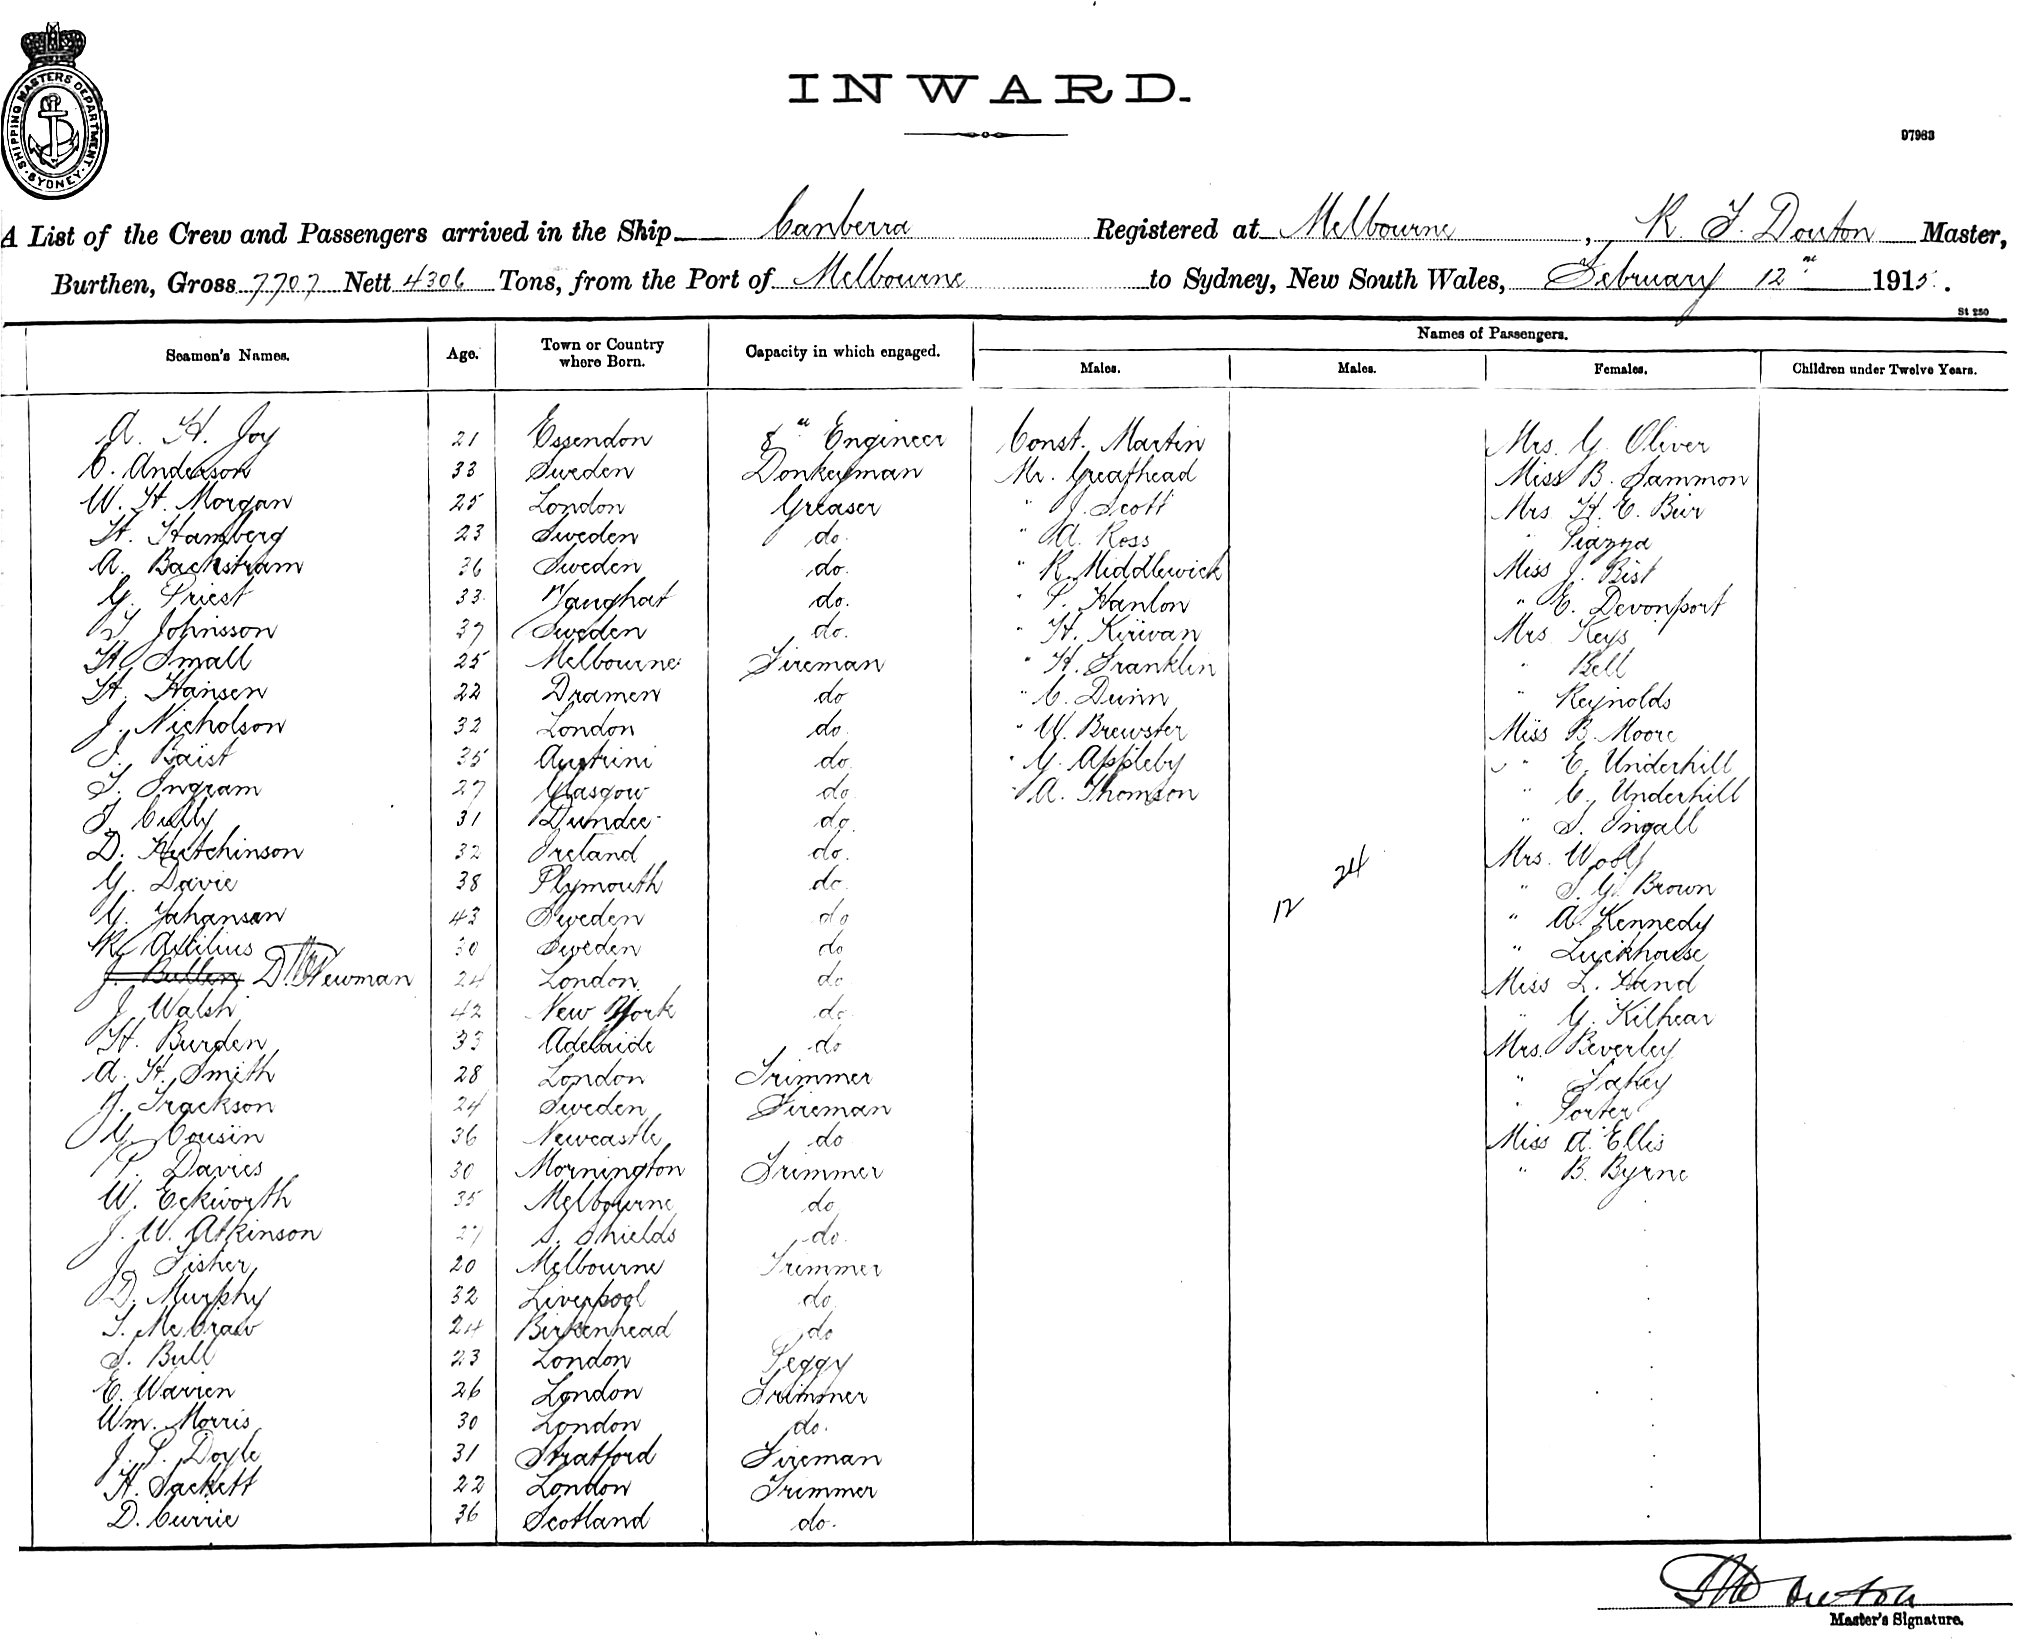 SHIPPING MASTERS DEPARTMENT. SYDNEY.
INWARD.
97983
A List of the Crew and Passengers arrived in the Ship Canberra Registered at Melbourne, R. J. Douton Master,
Burthen, Gross 7707 Nett 4306 Tons, from the Port of Melbourne to Sydney, New South Wales, February 12th 1915.
St 250
Seamen's Names. Age. Town or Country where Born. Capacity in which engaged. Names of Passengers.
Males. Males. Females. Children under Twelve Years.
A. H. Joy 21 Essendon 8th Engineer Const. Martin Mrs. G. Oliver
C. Anderson 33 Sweden Donkeyman Mr. Greathead Miss B. Sammon
W. H. Morgan 25 London Greaser " J. Scott Mrs H. E. Beir
H. Hamberg 23 Sweden do. " A. Ross " Piazza
A. Backstram 36 Sweden do. " R. Middlewick Miss J. Bist
G. Priest 33 Youghat do. " P. Hanlon " E. Devonport
J. Johnsson 37 Sweden do. " H. Kirivan Mrs. Keys
H. Small 25 Melbourne Fireman " H. Franklin " Bell
H. Hansen 22 Dramen do " C. Dunn " Reynolds
J. Nicholson 32 London do " W. Brewster Miss B. Moore
J. Baist 35 do. " G. Appleby " E. Underhill
T. Ingram 27 Glasgow do " A. Thomson " C. Underhill
J. Cully 31 Dundee do. " S. Ingall
D. Hutchinson 32 Ireland do. Mrs. Woolf
G. Davie 38 Plymouth do. 24 " S. G. Brown
G. Johansen 43 Sweden do 12 " A. Kennedy
R. Attilius 30 Sweden do " Luckhouse
J. Bullen D. Newman 24 London do Miss L. Hand
J. Walsh 42 New York do. " G. Kilhear
H. Burden 33 Adelaide do Mrs. Beverley
A. H. Smith 28 London Trimmer " Fahey
Trackson 24 Sweden Fireman " Porter
G. Cousin 36 Newcastle do Miss A. Ellis
P. Davies 30 Mornington Trimmer " B. Byrne
W. Eckworth 35 Melbourne do
J. W. Atkinson 27 S. Shields do.
J. Fisher 20 Melbourne Trimmer
D. Murphy 32 Liverpool do
T. McGraw 24 Birkenhead do
S. Bull 23 London Peggy
E. Warren 26 London Trimmer
Wm. Morris 30 London do.
J. P. Doyle 31 Stratford Fireman
H. Sackett 22 London Trimmer
D. Currie 36 Scotland do.
Douton
Master's Signature.